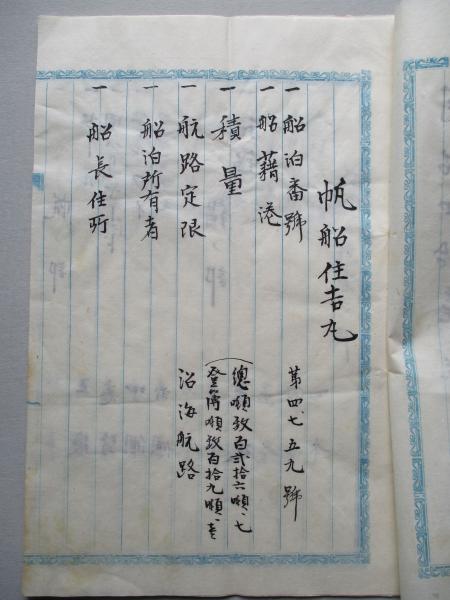 帆船住吉丸
一船泊番號 第四七五九號
一船藉港
一積量 總噸数百弐拾六噸、七
登簿噸数百拾九噸、壱
一航路定限 沿海航路
一船泊所有者
一船長住所